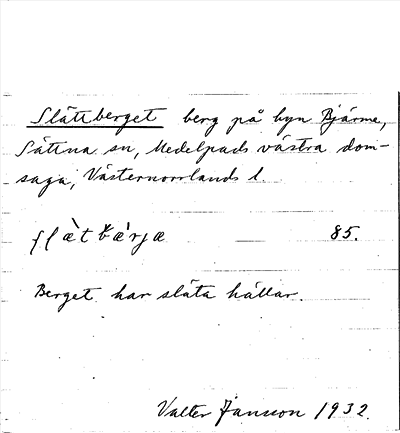 Slättberget berg på byn Bjärme,
Sättna sn, Medelpads västra dom-
saga, Västernorrlands l.
85.
Berget har släta hällar.
Valter Jansson 1932.